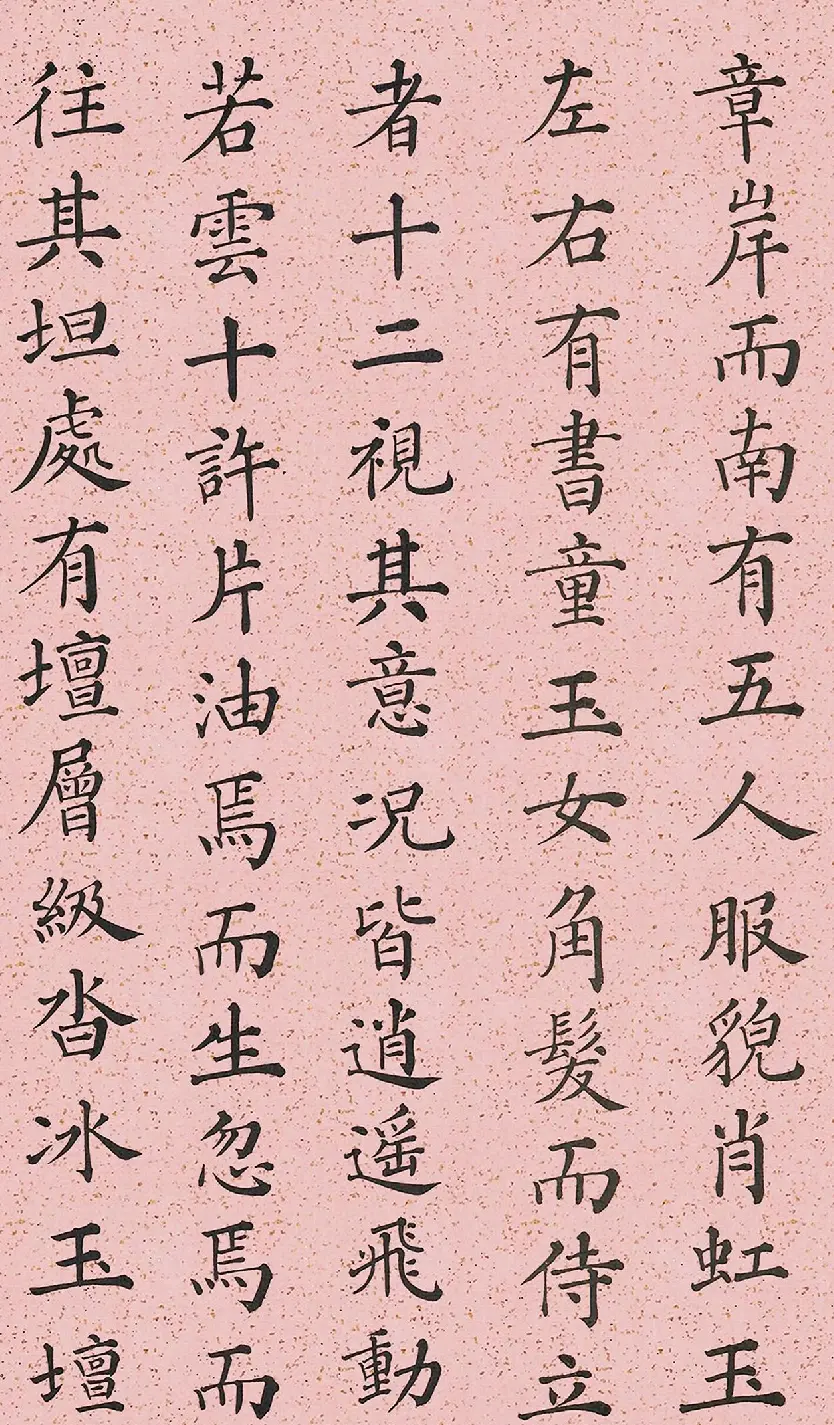 章岸而南有五人服貌肖虹玉
左右有書童玉女角髮而侍立
者十二視其意況皆逍遥飛動
若雲十許片油焉而生忽焉而
往其坦處有壇層級沓冰玉壇